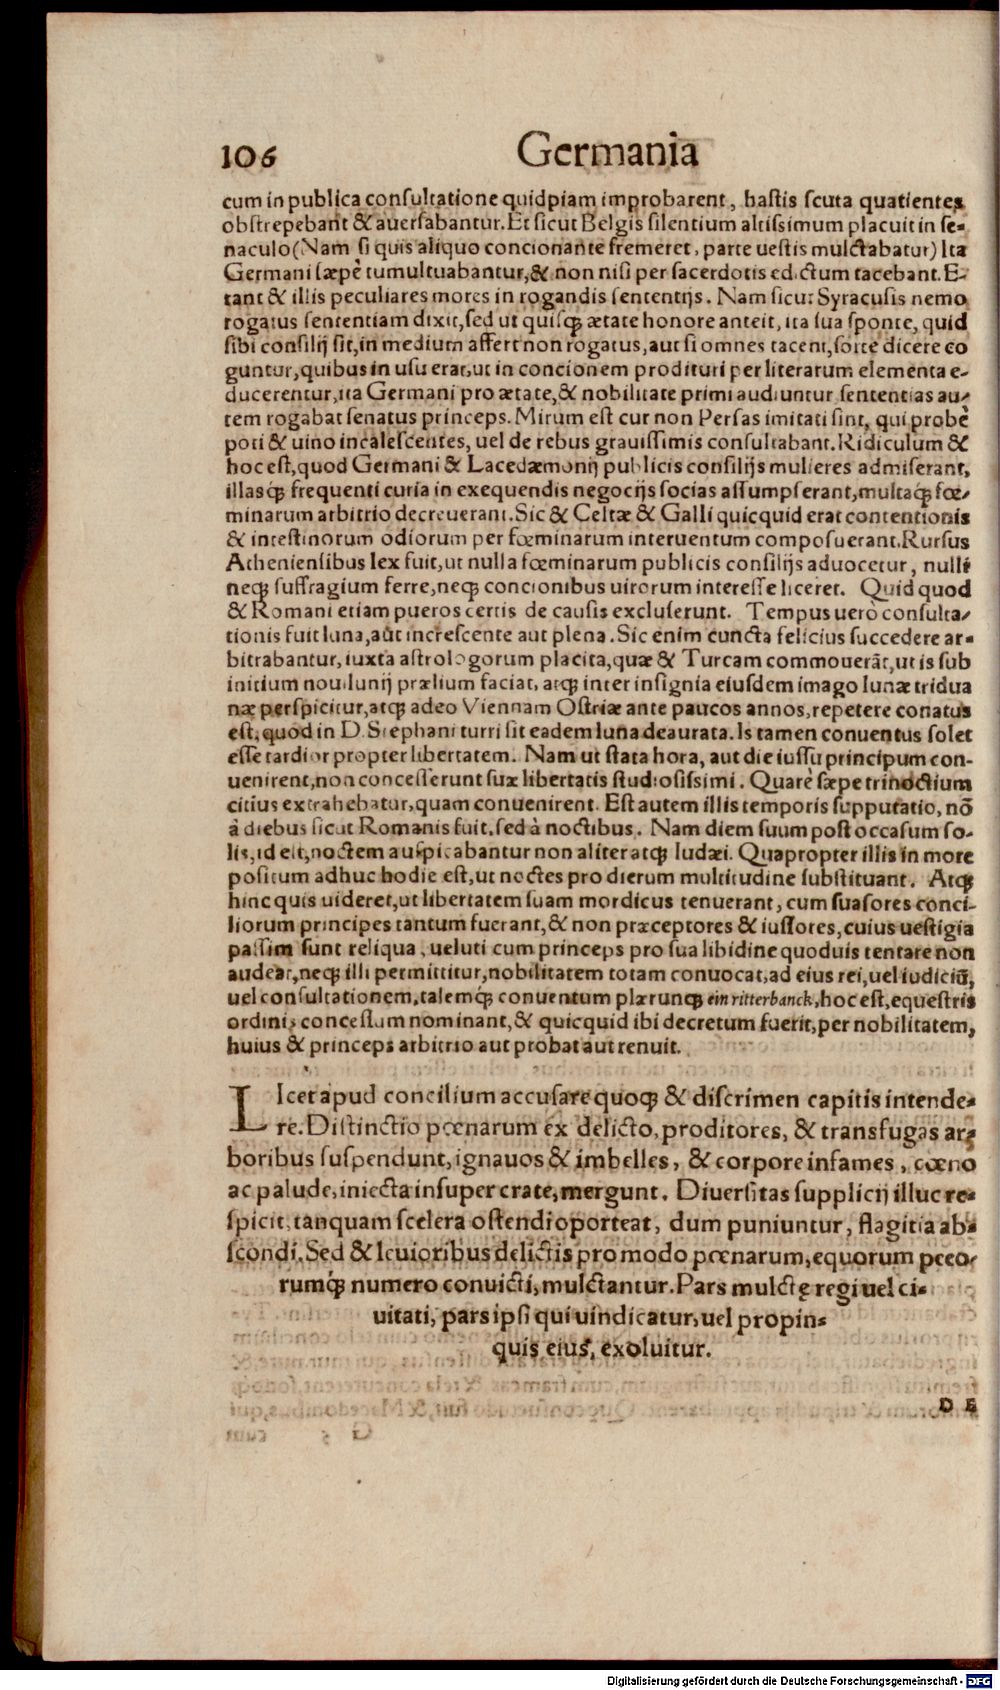 106 Germania
cum in publica consultatione quidpiam improbarent, hastis scuta quatientes
obstrepebant & auersabantur. Et sicut Belgis silentium altissimum placuit in se-
naculo (Nam si quis aliquo concionante fremeret, parte uestis mulctabatur) Ita
Germani sæpè tumultuabantur, & non nisi per sacerdotis edictum tacebant. E-
rant & illis peculiares mores in rogandis sententijs. Nam sicut Syracusis nemo
rogatus sententiam dixit, sed ut quisqꝫ ætate honore anteit, ita sua sponte, quid
sibi consilij sit, in medium affert non rogatus, aut si omnes tacent, sorte dicere co
guntur, quibus in usu erat, ut in concionem prodituri per literarum elementa e-
ducerentur, ita Germani pro ætate, & nobilitate primi audiuntur sententias au-
tem rogabat senatus princeps. Mirum est cur non Persas imitati sint, qui probè
poti & uino incalescentes, uel de rebus grauissimis consultabant. Ridiculum &
hoc est, quod Germani & Lacedæmonij publicis consilijs mulieres admiserant,
illasqꝫ frequenti curia in exequendis negocijs socias assumpserant, multaqꝫ fœ-
minarum arbitrio decreuerant. Sic & Celtæ & Galli quicquid erat contentionis
& intestinorum odiorum per fœminarum interuentum composuerant. Rursus
Atheniensibus lex fuit, ut nulla fœminarum publicis consilijs aduocetur, nulli
neqꝫ suffragium ferre, neqꝫ concionibus uirorum interesse liceret. Quid quod
& Romani etiam pueros certis de causis excluserunt. Tempus uerò consulta-
tionis fuit luna, aut increscente aut plena. Sic enim cuncta felicius succedere ar-
bitrabantur, iuxta astrologorum placita, quæ & Turcam commouerāt, ut is sub
initium nouilunij prælium faciat, atqꝫ inter insignia eiusdem imago lunæ tridua
næ perspicitur, atqꝫ adeo Viennam Ostriæ ante paucos annos, repetere conatus
est, quod in D. Stephani turri sit eadem luna deaurata. Is tamen conuentus solet
esse tardior propter libertatem. Nam ut stata hora, aut die iussu principum con-
uenirent, non concesserunt suæ libertatis studiosissimi. Quarè sæpe trinoctium
citius extrahebatur, quam conuenirent. Est autem illis temporis supputatio, nō
à diebus sicut Romanis fuit, sed à noctibus. Nam diem suum post occasum so-
lis, id est, noctem auspicabantur non aliter atqꝫ Iudæi. Quapropter illis in more
positum adhuc hodie est, ut noctes pro dierum multitudine substituant. Atqꝫ
hinc quis uideret, ut libertatem suam mordicus tenuerant, cum suasores conci-
liorum principes tantum fuerant, & non præceptores & iussores, cuius uestigia
passim sunt reliqua, ueluti cum princeps pro sua libidine quoduis tentare non
audeat, neqꝫ illi permittitur, nobilitatem totam conuocat, ad eius rei, uel iudiciū,
uel consultationem, talemqꝫ conuentum plærunqꝫ ein ritterbanck, hoc est, equestris
ordinis concessum nominant, & quicquid ibi decretum fuerit, per nobilitatem,
huius & princeps arbitrio aut probat aut renuit.
LIcet apud concilium accusare quoqꝫ & discrimen capitis intende-
re. Distinctio pœnarum ex delicto, proditores, & transfugas ar-
boribus suspendunt, ignauos & imbelles, & corpore infames, cœno
ac palude, iniecta insuper crate, mergunt. Diuersitas supplicij illuc re-
spicit, tanquam scelera ostendi oporteat, dum puniuntur, flagitia ab-
scondi. Sed & leuioribus delictis pro modo pœnarum, equorum peco-
rumqꝫ numero conuicti, mulctantur. Pars mulctę regi uel ci-
uitati, pars ipsi qui uindicatur, uel propin-
quis eius, exoluitur.
D E
Digitalisierung gefördert durch die Deutsche Forschungsgemeinschaft - DFG